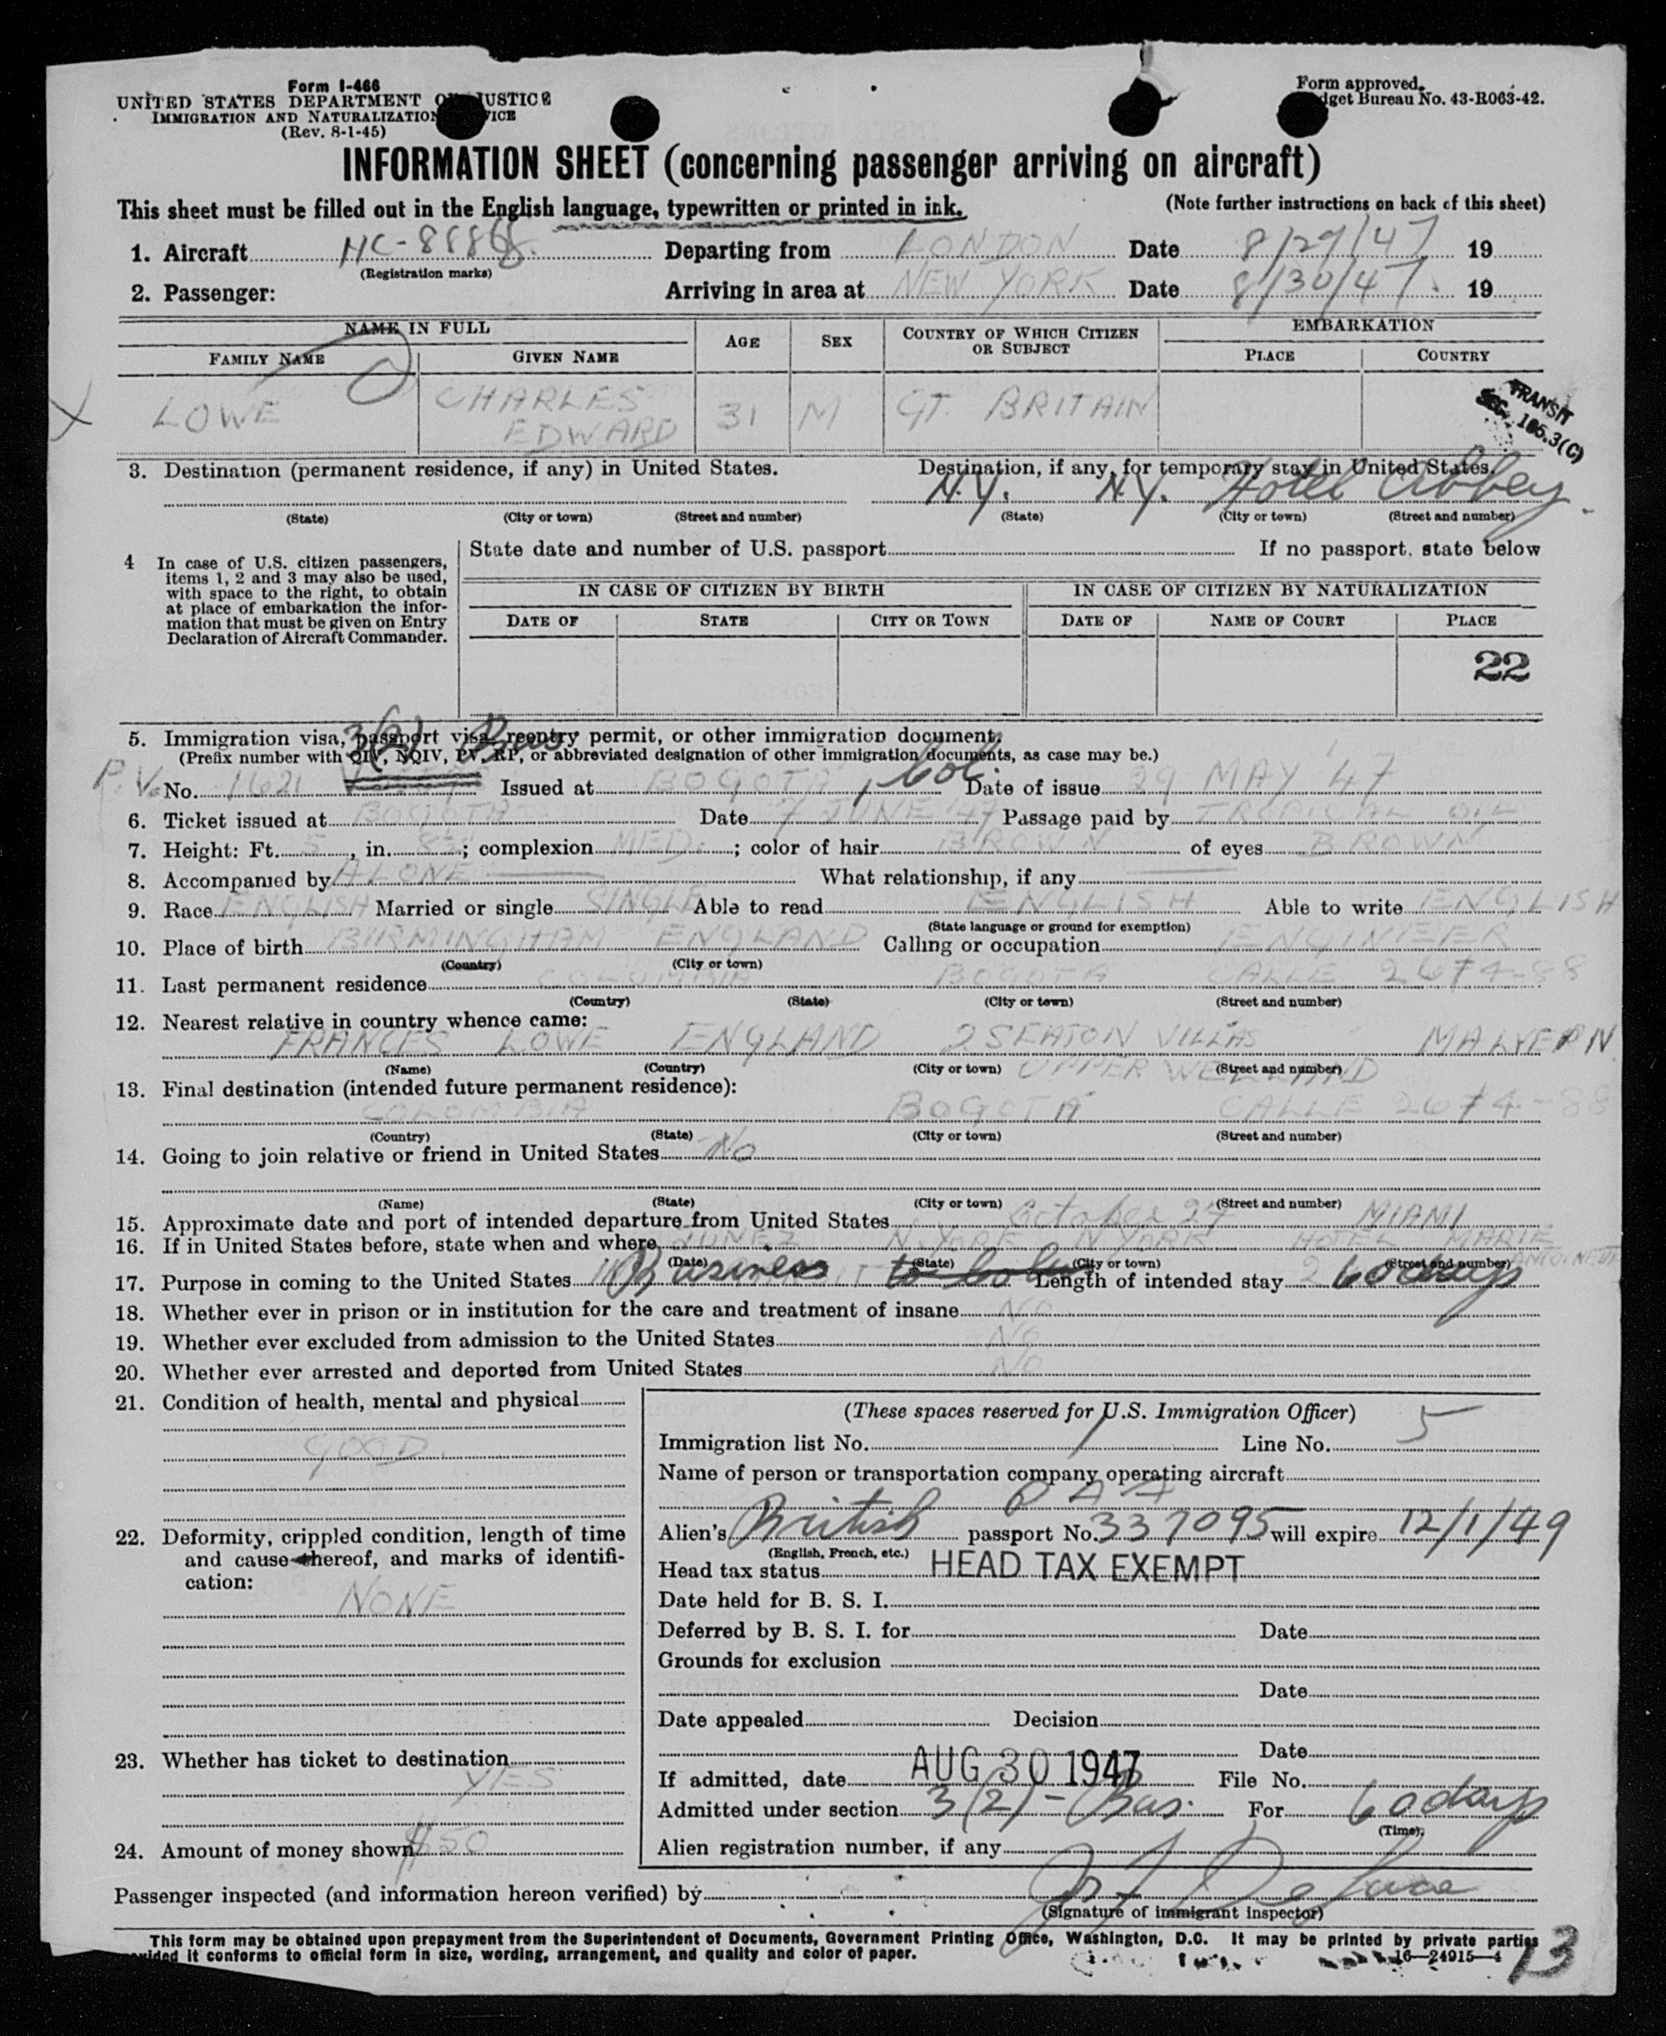 Form I-466
UNITED STATES DEPARTMENT OF JUSTICE
IMMIGRATION AND NATURALIZATION SERVICE
(Rev. 8-1-45)
Form approved.
Budget Bureau No. 43-R063-42.
INFORMATION SHEET (concerning passenger arriving on aircraft)
This sheet must be filled out in the English language, typewritten or printed in ink.
(Note further instructions on back of this sheet)
1. Aircraft NC-88868 Departing from LONDON Date 8/29/47 19
(Registration marks)
2. Passenger: Arriving in area at NEW YORK Date 8/30/47 19
NAME IN FULL AGE SEX COUNTRY OF WHICH CITIZEN OR SUBJECT EMBARKATION
FAMILY NAME GIVEN NAME PLACE COUNTRY
X LOWE CHARLES EDWARD 31 M GT. BRITAIN
TRANSIT
SEC. 165.3(C)
3. Destination (permanent residence, if any) in United States. Destination, if any, for temporary stay in United States.
N.Y. N.Y. Hotel Abbey
(State) (City or town) (Street and number) (State) (City or town) (Street and number)
4 In case of U.S. citizen passengers, items 1, 2 and 3 may also be used, with space to the right, to obtain at place of embarkation the information that must be given on Entry Declaration of Aircraft Commander.
State date and number of U.S. passport If no passport, state below
IN CASE OF CITIZEN BY BIRTH IN CASE OF CITIZEN BY NATURALIZATION
DATE OF STATE CITY OR TOWN DATE OF NAME OF COURT PLACE
22
3(2) Bus
5. Immigration visa, passport visa, reentry permit, or other immigration document.
(Prefix number with QIV, NQIV, PV, RP, or abbreviated designation of other immigration documents, as case may be.)
P.V. No. 1621 Issued at BOGOTA, Col. Date of issue 29 MAY '47
6. Ticket issued at BOGOTA Date 7 JUNE '47 Passage paid by TROPICAL OIL
7. Height: Ft. 5, in. 8½; complexion MED.; color of hair BROWN of eyes BROWN
8. Accompanied by ALONE What relationship, if any
9. Race ENGLISH Married or single SINGLE Able to read ENGLISH Able to write ENGLISH
(State language or ground for exemption)
10. Place of birth BIRMINGHAM ENGLAND Calling or occupation ENGINEER
(Country) (City or town)
11. Last permanent residence COLOMBIA BOGOTA CALLE 26 74-88
(Country) (State) (City or town) (Street and number)
12. Nearest relative in country whence came:
FRANCES LOWE ENGLAND 2 SEATON VILLAS MALVERN
(Name) (Country) (City or town) UPPER WELLAND (Street and number)
13. Final destination (intended future permanent residence):
COLOMBIA BOGOTA CALLE 26 74-88
(Country) (State) (City or town) (Street and number)
14. Going to join relative or friend in United States No
(Name) (State) (City or town) (Street and number)
15. Approximate date and port of intended departure from United States October 27 MIAMI
16. If in United States before, state when and where JUNE 7 N.YORK N YORK HOTEL MARIE ANTOINETTE
(Date) (State) (City or town) (Street and number)
17. Purpose in coming to the United States Business Length of intended stay 60 days
18. Whether ever in prison or in institution for the care and treatment of insane NO
19. Whether ever excluded from admission to the United States NO
20. Whether ever arrested and deported from United States NO
21. Condition of health, mental and physical
GOOD.
22. Deformity, crippled condition, length of time
and cause thereof, and marks of identifi-
cation:
NONE
23. Whether has ticket to destination
YES
24. Amount of money shown $50
(These spaces reserved for U.S. Immigration Officer)
Immigration list No. 1 Line No. 5
Name of person or transportation company operating aircraft
P A A
Alien's British passport No. 337095 will expire 12/1/49
(English, French, etc.)
Head tax status HEAD TAX EXEMPT
Date held for B. S. I.
Deferred by B. S. I. for Date
Grounds for exclusion
Date
Date appealed Decision
Date
If admitted, date AUG 30 1947 File No.
Admitted under section 3(2)-Bus. For 60 days
(Time)
Alien registration number, if any
Passenger inspected (and information hereon verified) by
(Signature of immigrant inspector)
This form may be obtained upon prepayment from the Superintendent of Documents, Government Printing Office, Washington, D.C. It may be printed by private parties
provided it conforms to official form in size, wording, arrangement, and quality and color of paper.
16-24915-4
13